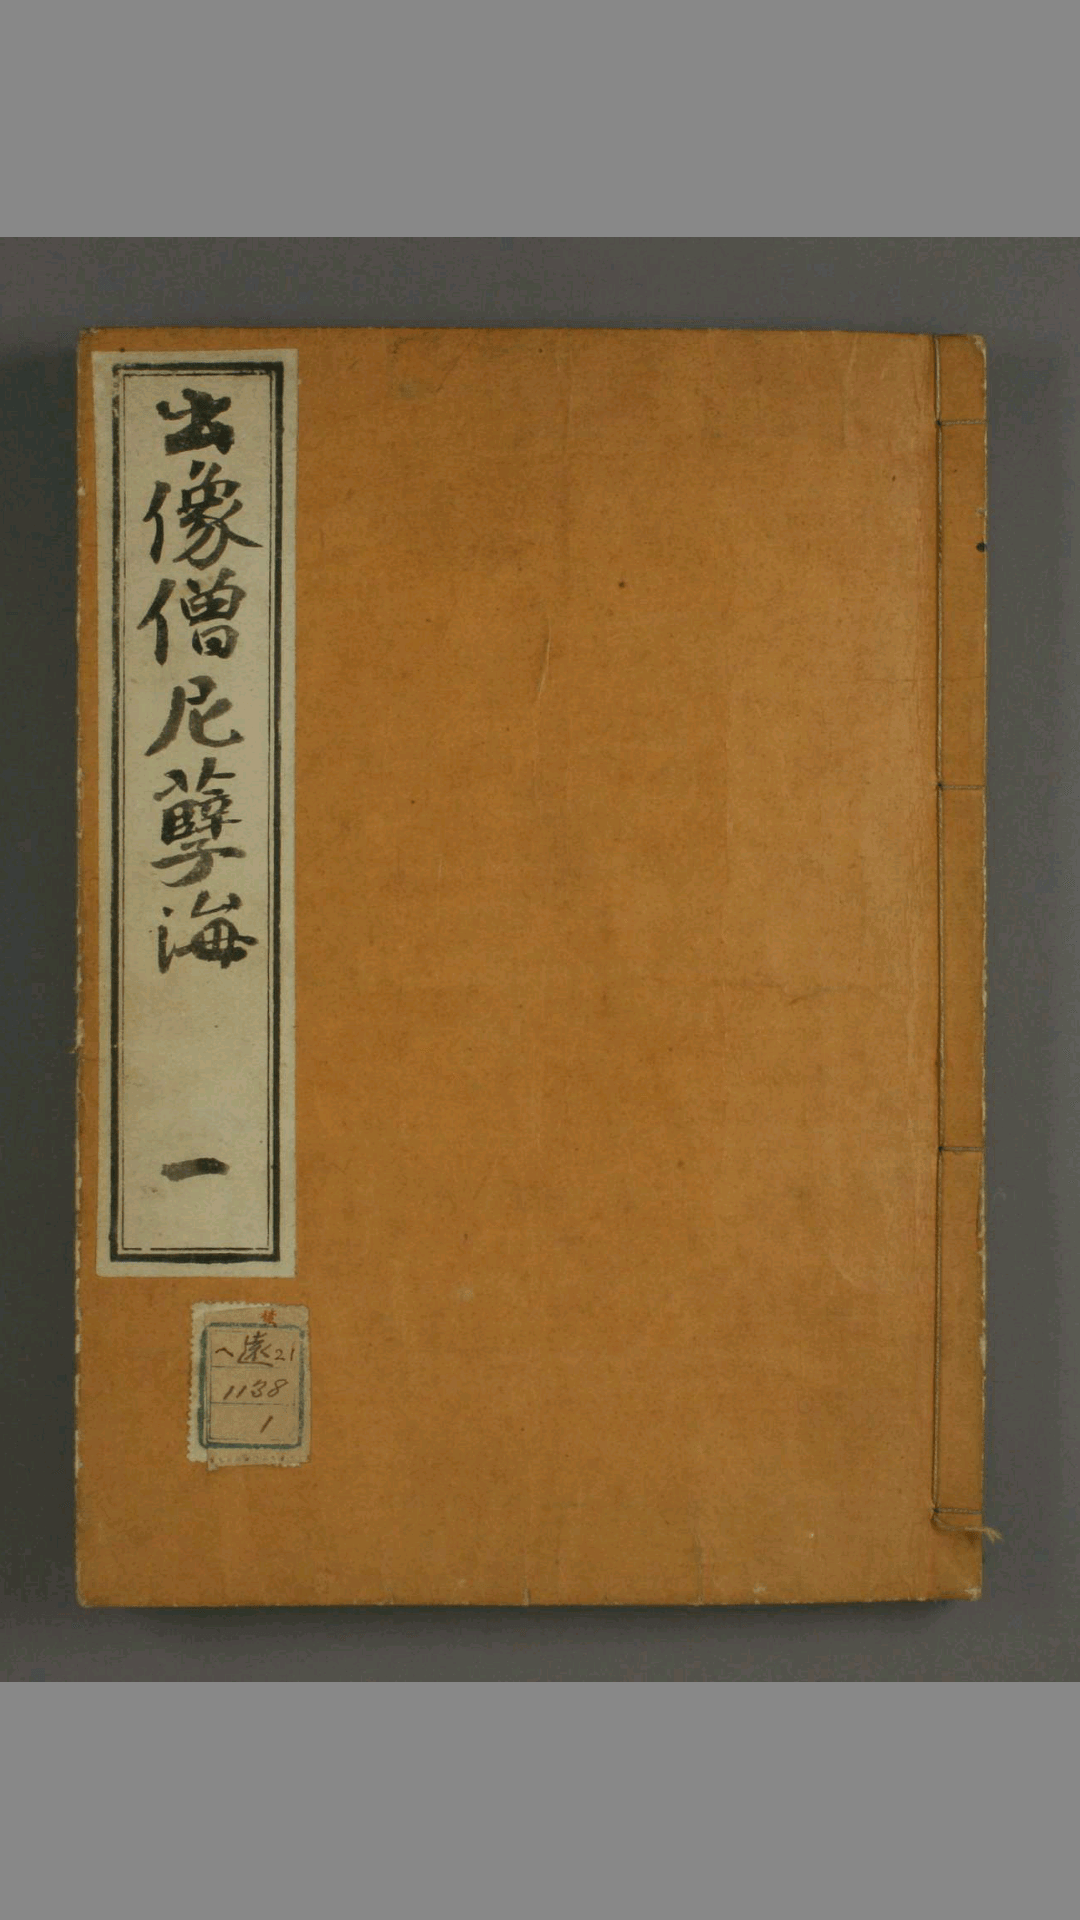 出像僧尼孽海
一
ヘ遠21
1138
1